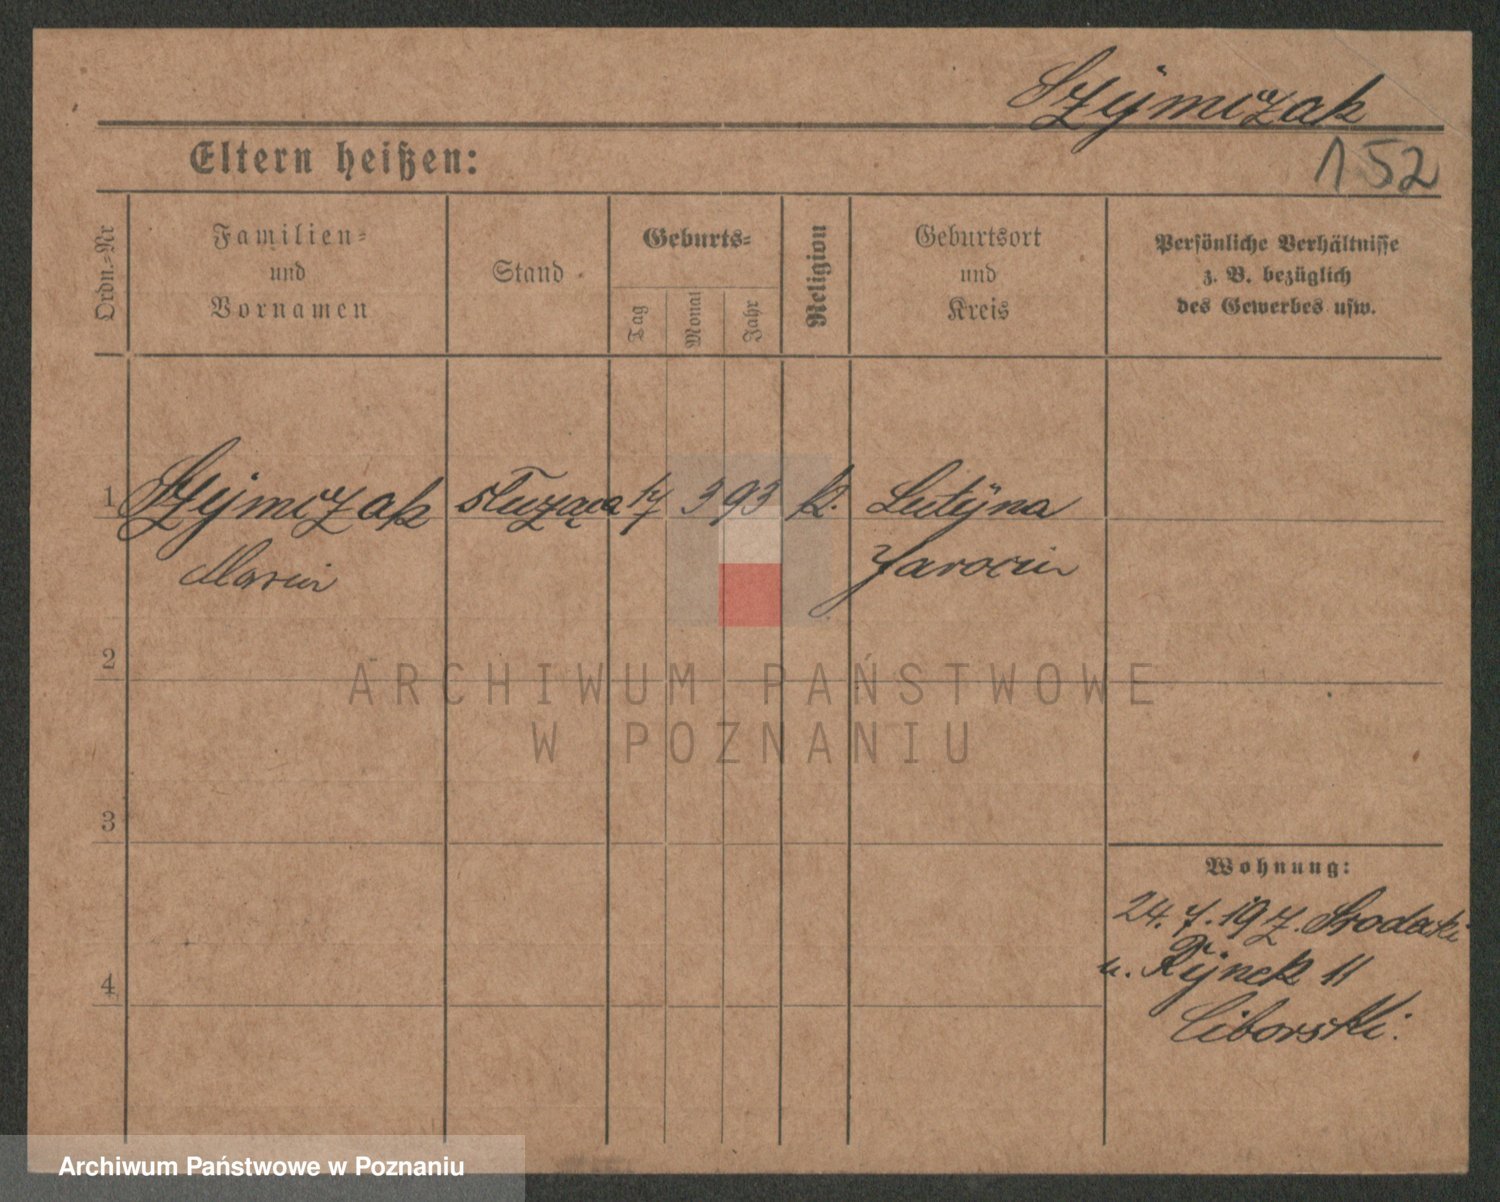 Szÿmczak
152
Eltern heißen:
Ordn.-Nr
Familien-
und
Vornamen
Stand
Geburts-
Tag
Monat
Jahr
Religion
Geburtsort
und
Kreis
Persönliche Verhältnisse
z. B. bezüglich
des Gewerbes usw.
1 Szÿmczak służąca 17 3 93 k. Lutÿna
Jarocin
2
ARCHIWUM PAŃSTWOWE
W POZNANIU
3
Wohnung:
24. 7. 19 z. Srodecki
u. Rÿnek 11
4
Ciborski.
Archiwum Państwowe w Poznaniu